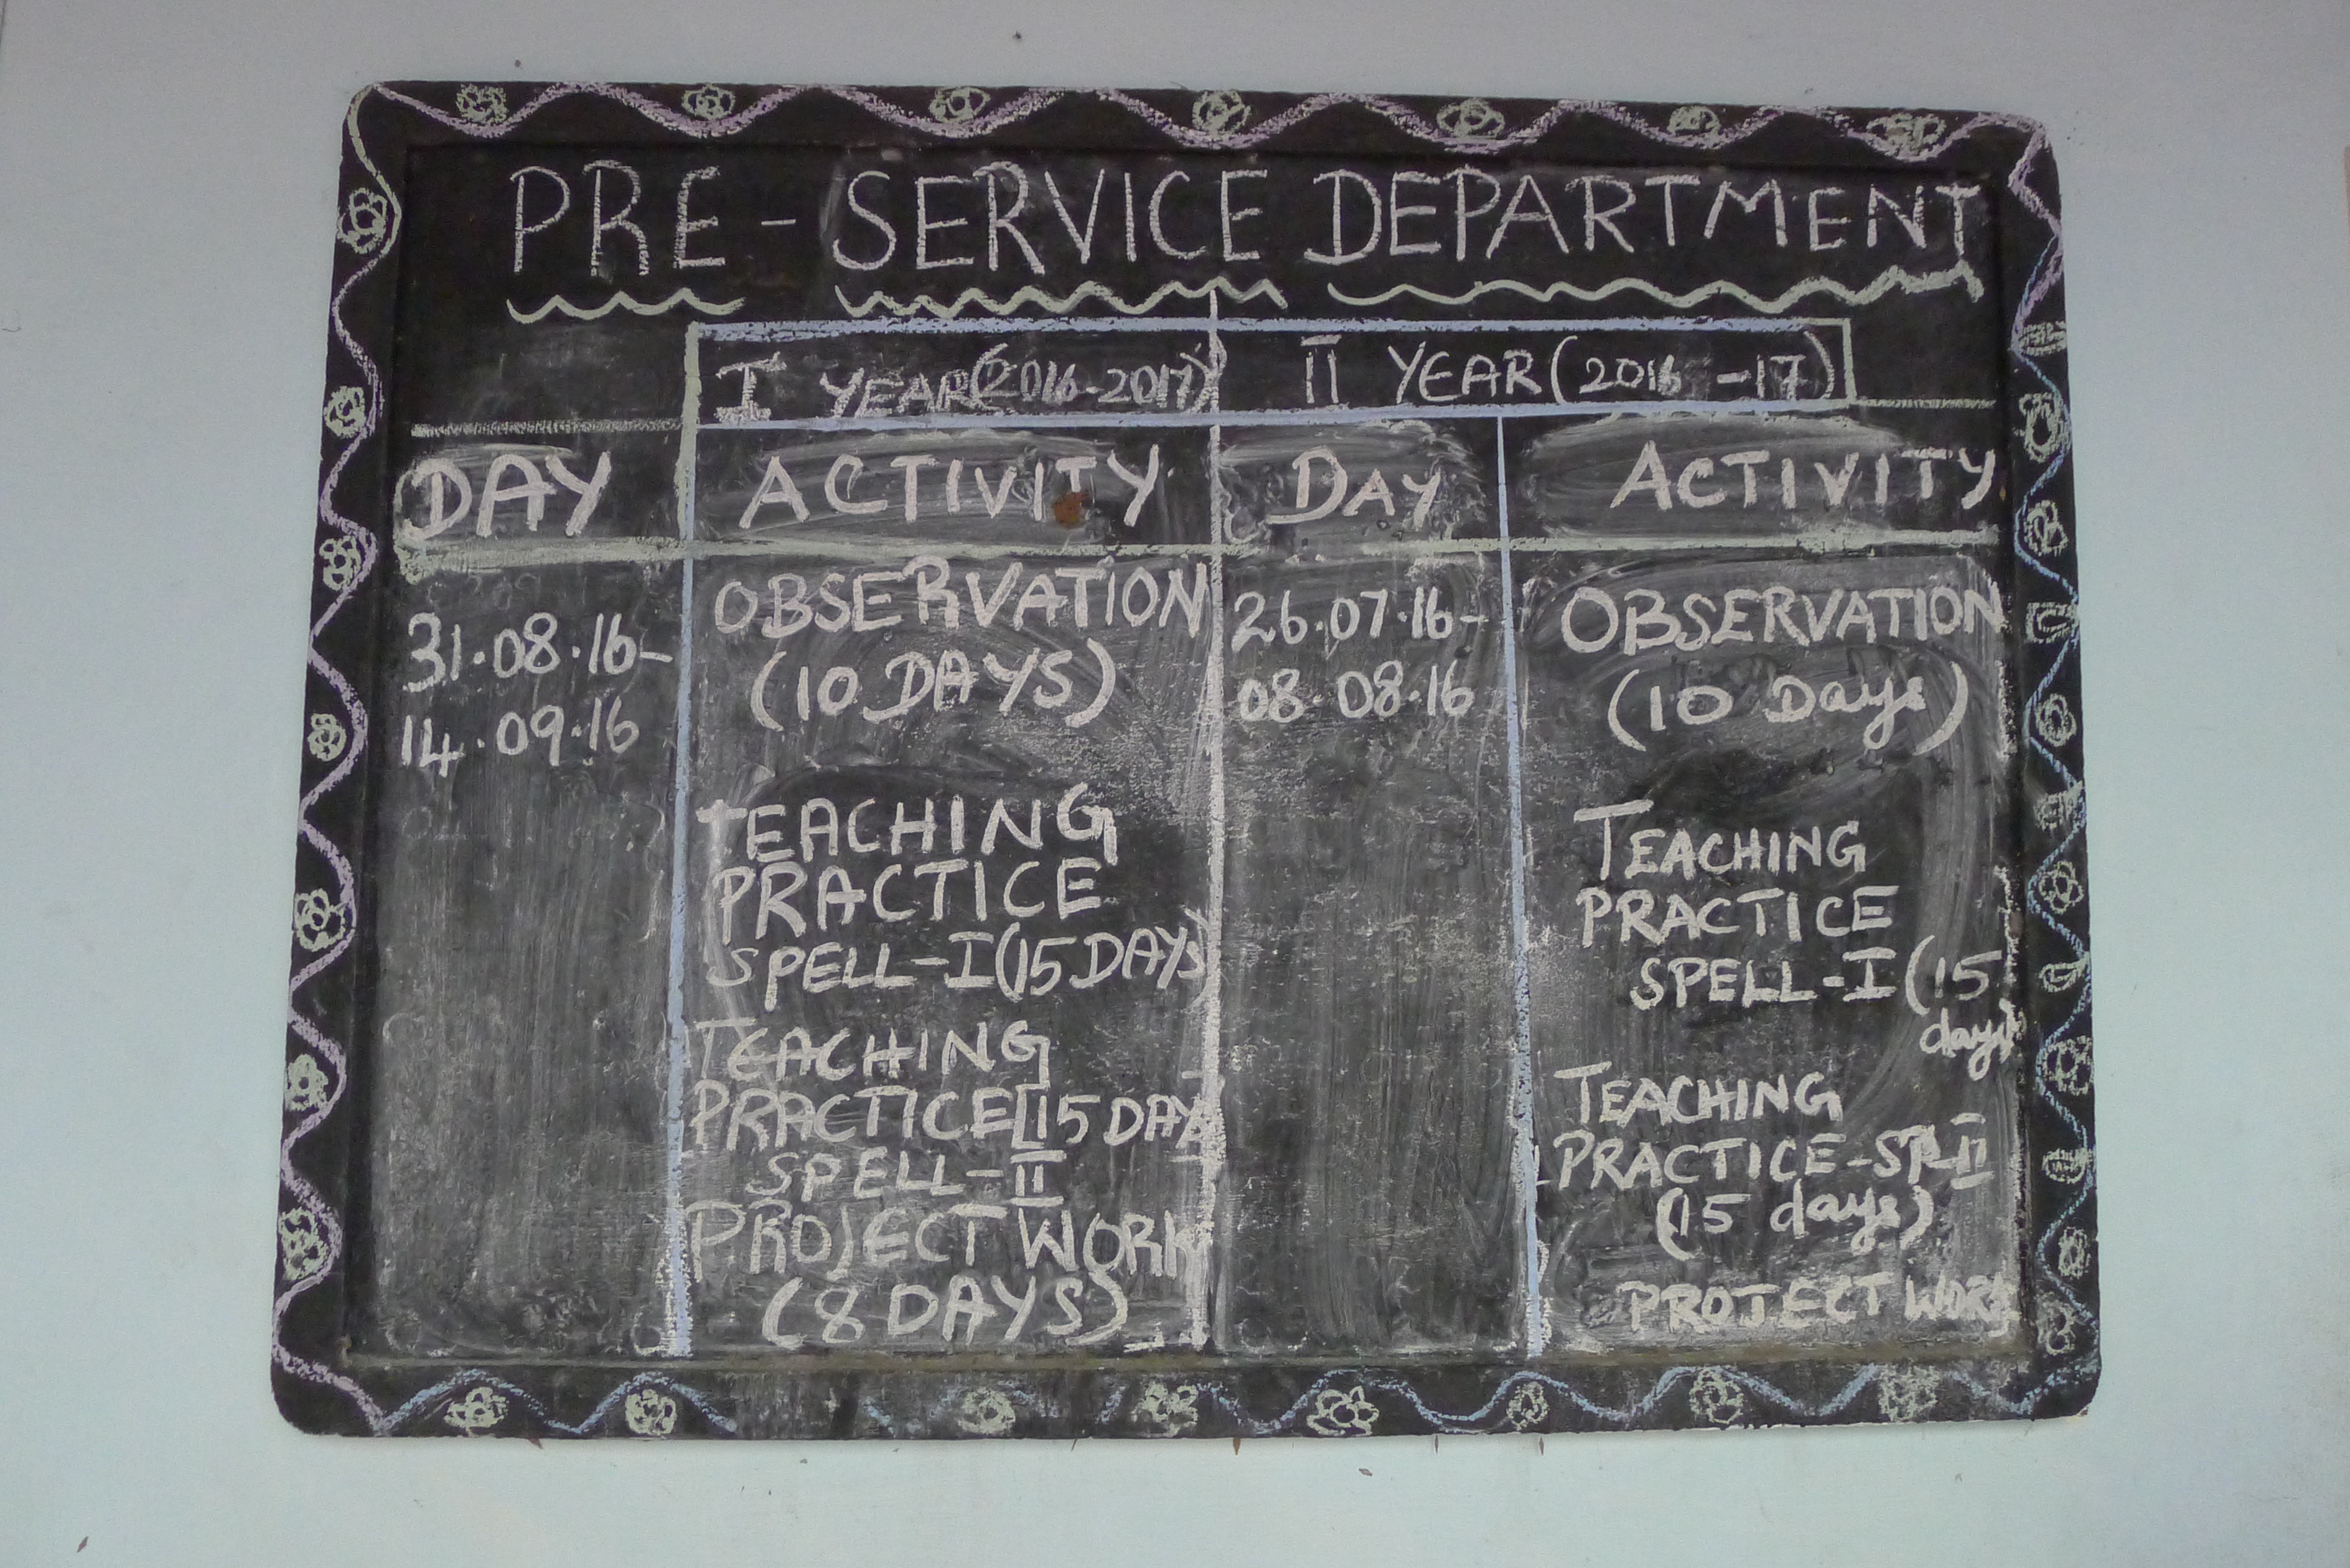 PRE - SERVICE DEPARTMENT
I YEAR (2016-2017) II YEAR (2016 -17)
DAY ACTIVITY DAY ACTIVITY
31.08.16-
14.09.16
OBSERVATION
(10 DAYS)
TEACHING
PRACTICE
SPELL-I (15 DAYS)
TEACHING
PRACTICE [15 DAYS
SPELL-II
PROJECT WORK
(8 DAYS)
26.07.16-
08.08.16
OBSERVATION
(10 Days)
TEACHING
PRACTICE
SPELL-I (15
days)
TEACHING
PRACTICE-SPL-II
(15 days)
PROJECT WORK